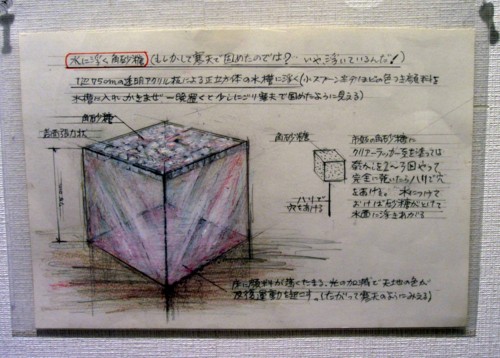 水に浮く角砂糖 (もしかして寒天で固めたのでは?… いや、浮いているんだ!
1辺75cmの透明アクリル板による正立方体の水槽に浮く(小スプーン
水槽に入れ、かきまぜ一晩置くと少しにごり寒天で固めたように見える)
角砂糖
表面張力状
角砂糖
ハリで
穴をあける
市販の角砂糖に
クリアーラッカーを塗っては
乾かしを2〜3回やって
完全に乾いたらハリで穴
をあける。水につけて
おけば砂糖がとけて
水面に浮きあがる
床に顔料が落ちたまる、光の加減で天地の色が
反復運動を起こす。(したがって寒天のようにみえる)